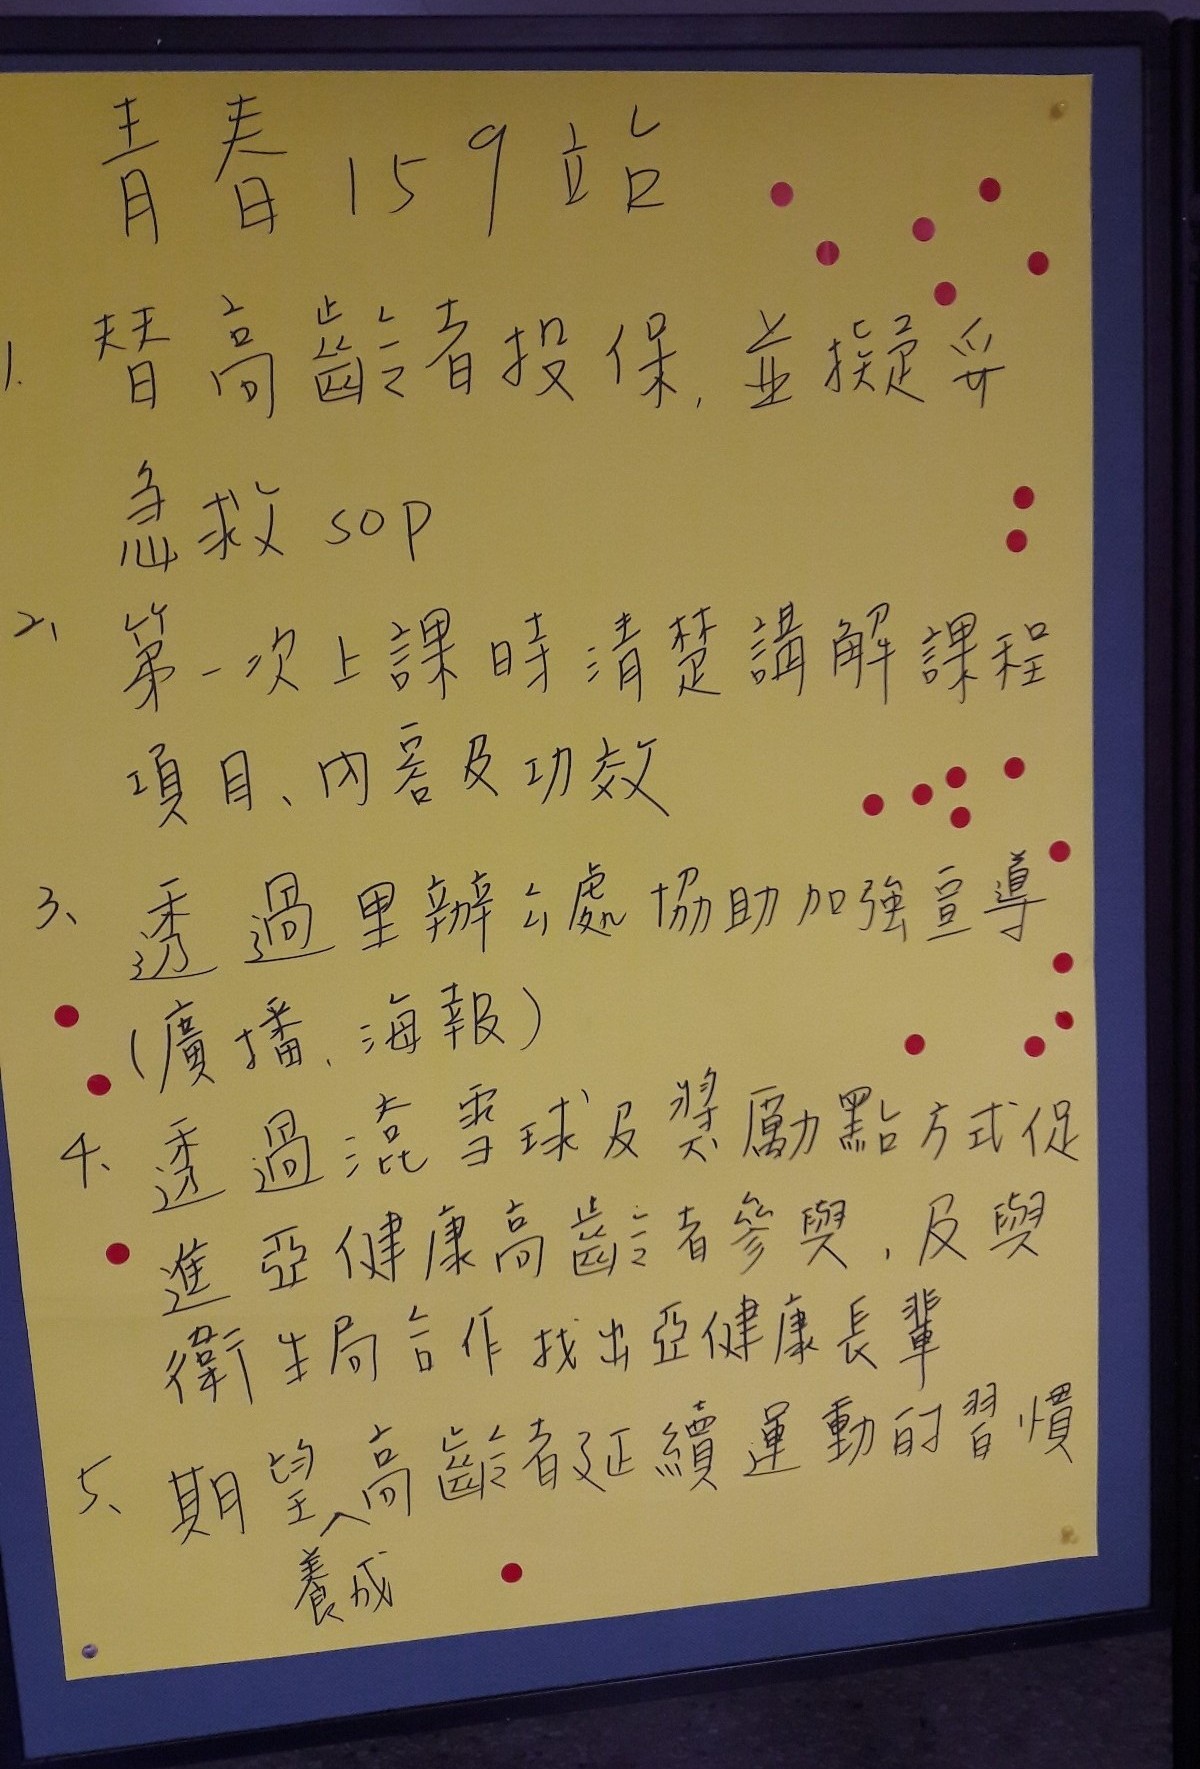 青春159站
1. 替高齡者投保, 並擬妥
急救sop
2、第一次上課時清楚講解課程
項目、內容及功效
3、透過里辦公處協助加強宣導
(廣播、海報)
4、透過滾雪球及獎勵點方式促
進亞健康高齡者參與, 及與
衛生局合作找出亞健康長輩
5、期望高齡者延續運動的習慣
養成